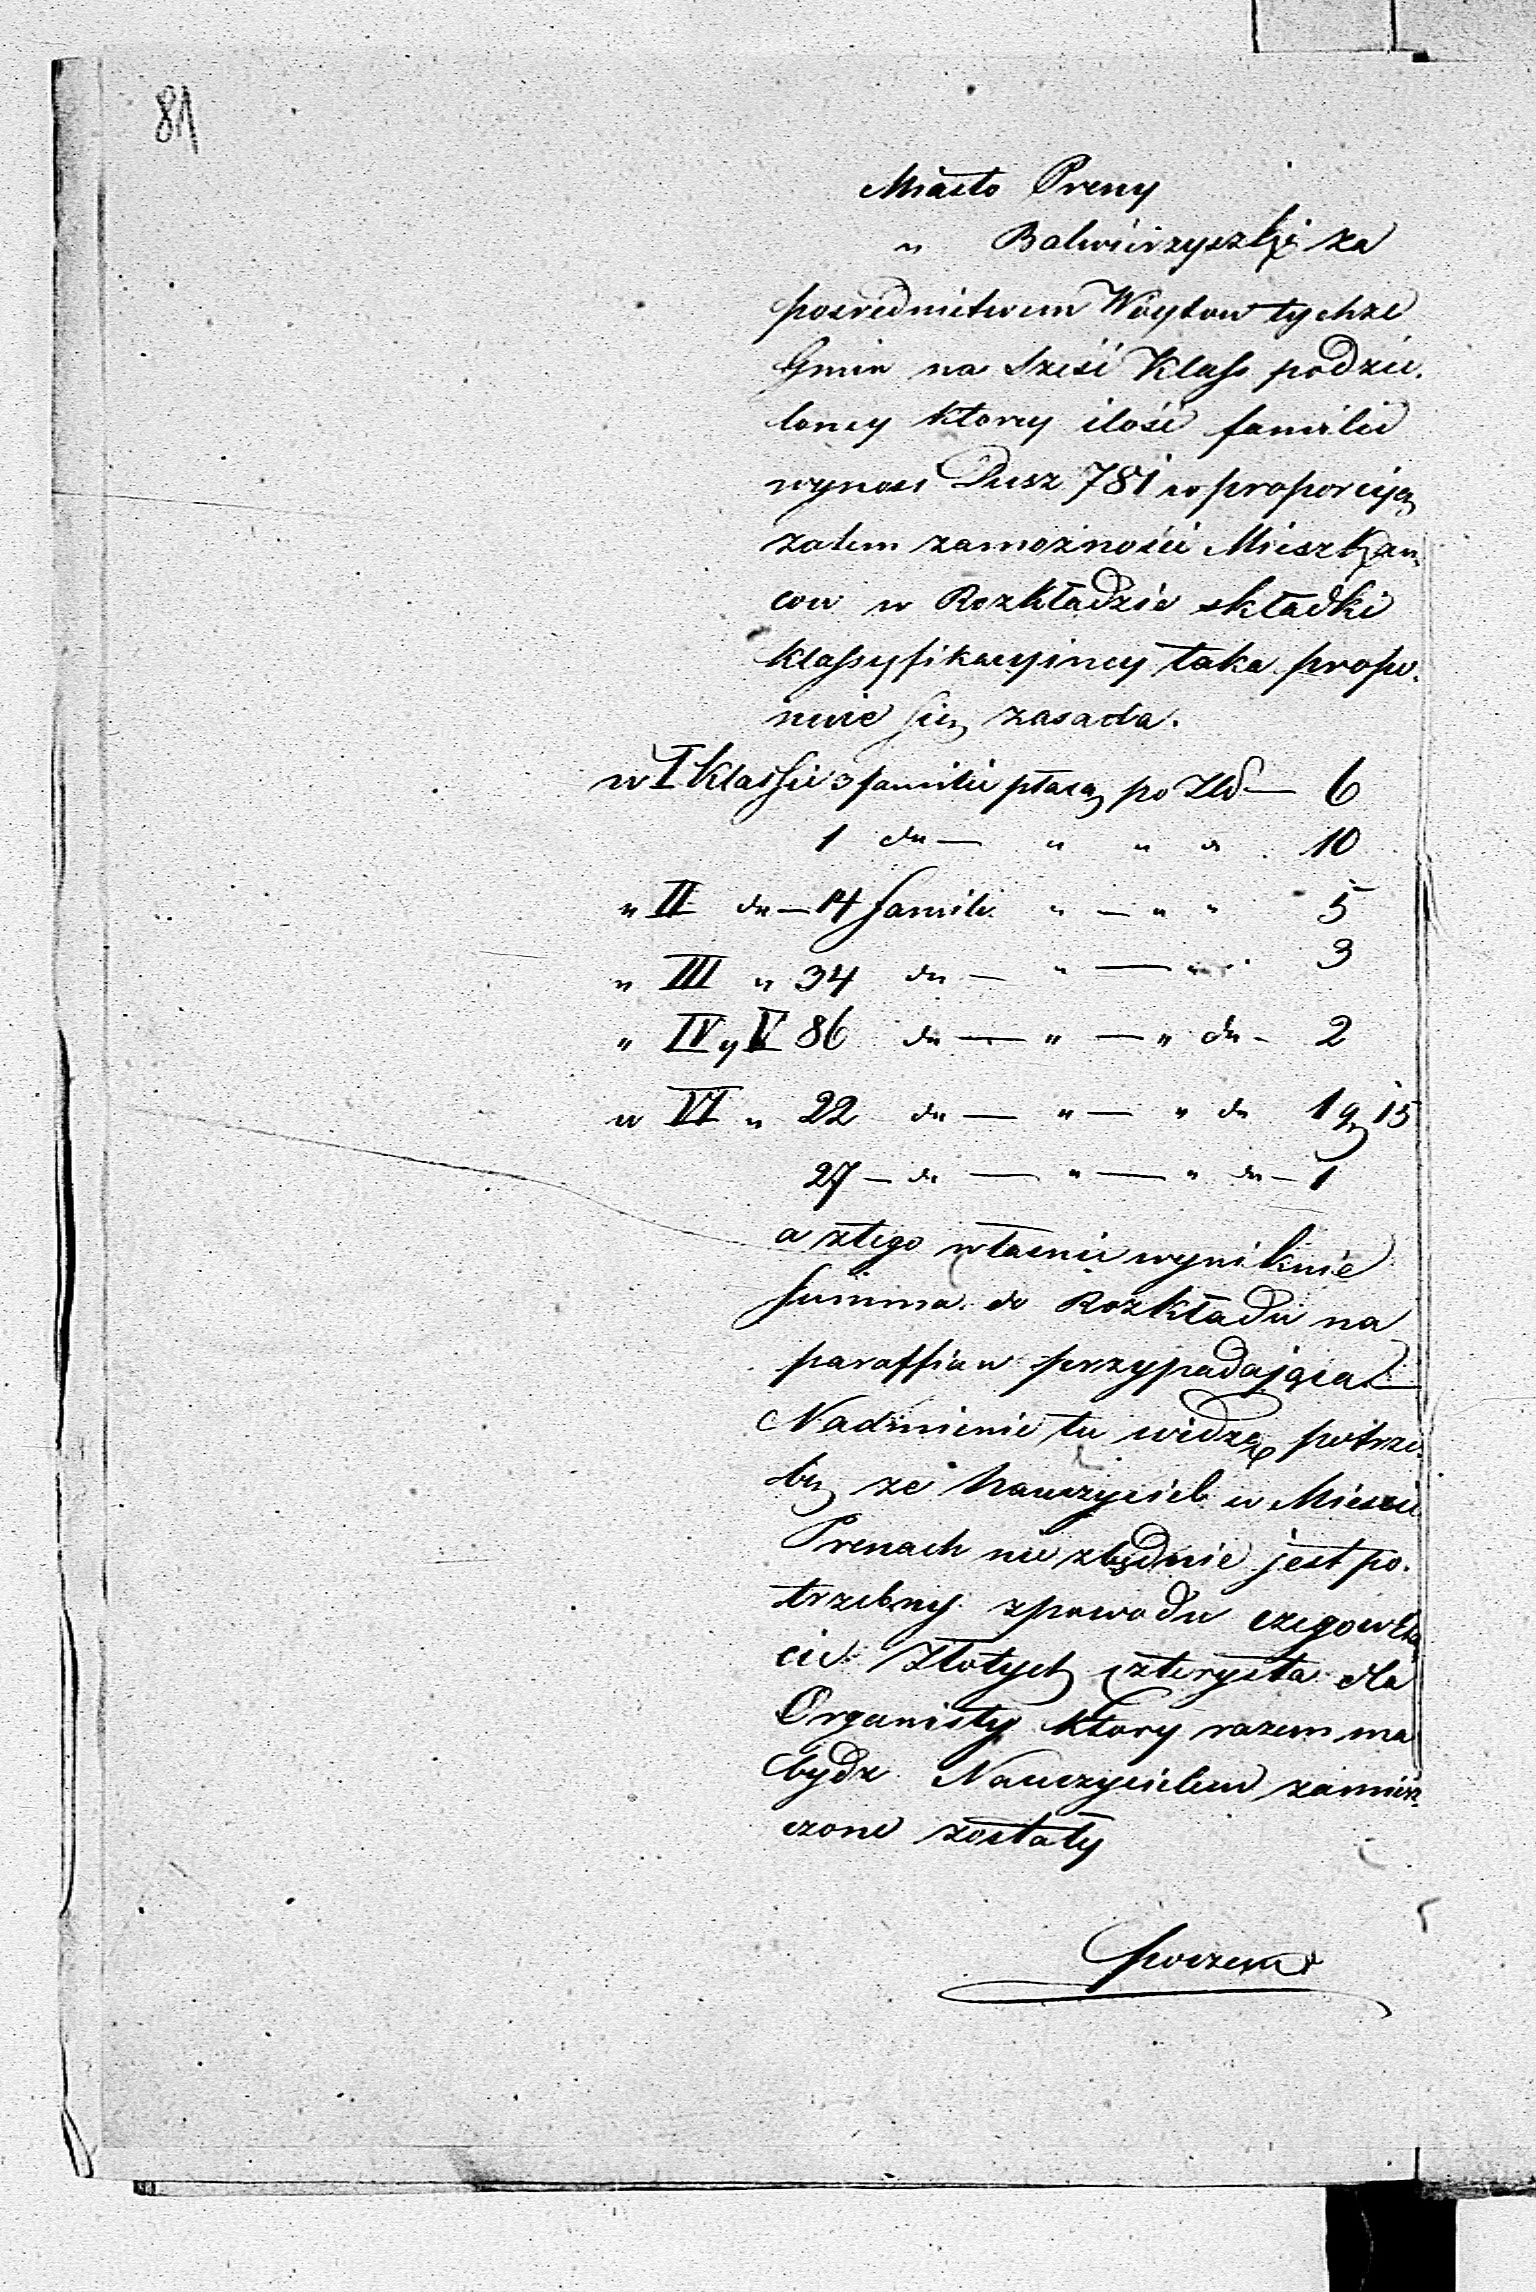 81
Miasto Preny
" Balwierzyszki za
posrednictwem Woytow tychze
Gmin na sześć Klass podzie-
loney ktorey ilość familii
wynosi Dusz 781 w proporcyą
zatem zamożności Mieszkan-
cow w Rozkładzie składki
klassyfikacyiney taka propo-
nuie się zasada.
w I Klassie 3 familie płacą po Złł — 6
1 do — " " " 10
" II do — 14 famili " — " " 5
" III " 34 do — " — " " 3
" IV y V 86 do — " — " do - 2
w VI " 22 do — " — " do 1 g 15
27 — do — " — " do — 1
a ztego własnie wyniknie
summa do Rozkładu na
paraffian przypadająca —
Nadmienie tu widzę potrze-
bę ze Nauczyciel w Miescie
Prenach nie zbędnie jest po-
trzebny zpowodu czego w Eta
cie Złotych czterysta dla
Organisty ktory razem ma
bydz Nauczycielem zamiesz-
czone zostały